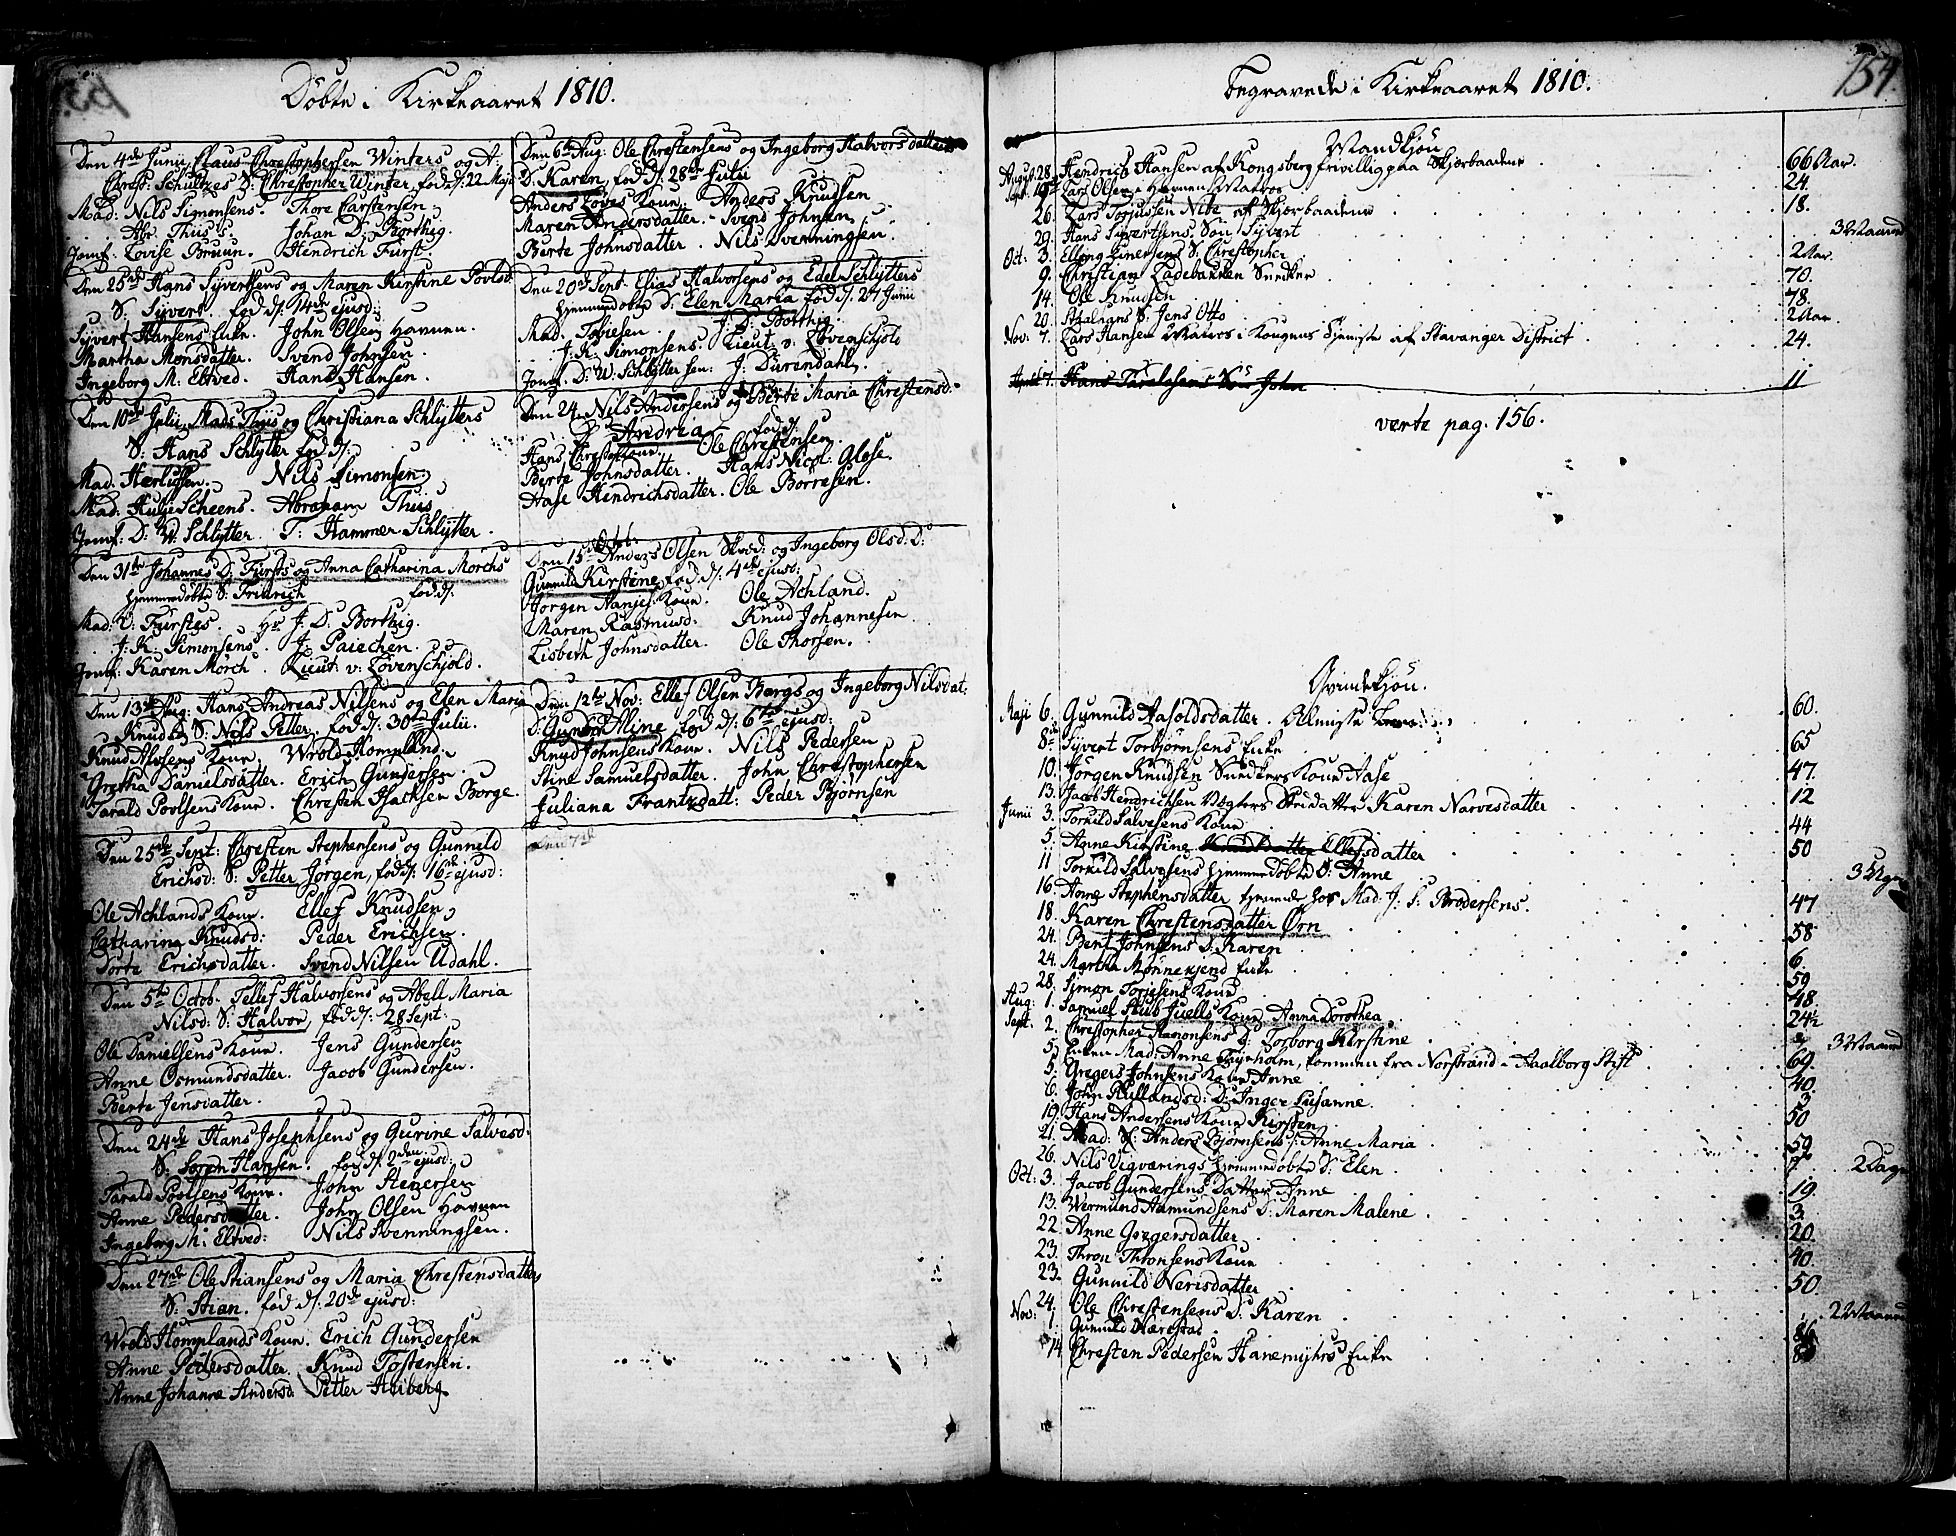 Döbte i Kirkeaaret 1810.
Den 4de Junii Claus Christophersen Winters og A:
Christ: Schultzes S: Christopher Winter, fød d: 22 Maji
Mad: Nils Simonsens. Thore Carstensen
Abr. Thus's. Johan D: Borthig.
Jomf: Lovise Bruun. Hendrich Fürst.
Den 25de Hans Syvertsens og Maren Kirstine Povlsd:
S. Syvert. fød d: 14de ejusd:
Syvert Hansens Enke. John Olsen Havnen.
Martha Monsdatter. Svend Johnsen.
Ingeborg M: Eltved. Hans Hansen.
Den 10de Julii Mads Thiis og Christiana Schlytters
S: Hans Schlytter fød d:
Mad. Herlufsen. Nils Simonsen
Mad. Scheens. Abraham Thiis
Jomf: D: W: Schlytter. T: Hammer Schlytter.
Den 31te Johannes D: Fürsts og Anna Catharina Mörchs
hjemmedöbte S: Fridrich fød d:
Mad: D: Fürstes. Hr J: D: Borthig.
J: K: Simonsens. J: Paiechen.
Jomf: Karen Mörch. Lieut: v: Lövenschjold.
Den 13de Aug: Hans Andreas Nilsens og Elen Maria
Knudsd: S: Nils Petter, fød d: 30te Julii.
Knud Alfsens Kone. Wrold Kompland.
Gretha Danielsdatter. Erich Gundersen.
Tarald Povlsens Kone. Christen Isachsen Borge.
Den 25de Sept: Christen Stephensens og Gunnild
Erichsd: S: Petter Jörgen, fød d: 16de ejusd:
Ole Achlands Kone. Ellef Knudsen
Catharina Knudsd: Peder Erichsen.
Dorte Erichsdatter. Svend Nilsen Udahl.
Den 5te Octob. Tellef Halvorsens og Abell Maria
Nilsd: S: Halvor, fød d: 28 Sept.
Ole Daniellsens Kone. Jens Gundersen
Anne Osmundsdatter. Jacob Gundersen.
Berte Jensdatter.
Den 24de Hans Josephsens og Gurine Salvesd:
S: Soren Hansen. fød d: 2den ejusd:
Tarald Povlsens Kone. John Stenersen
Anne Pedersdatter. John Olsen Havnen
Ingeborg M: Eltved: Nils Svenningsen.
Den 27de Ole Stiansens og Maria Christensdatters
S: Stian. fød d: 20de ejusd:
Wrold Homplands Kone. Erich Gundersen
Anne Pedersdatter. Knud Tostensen.
Anne Johanne Andersd. Petter Hüberg
Den 6te Aug: Ole Christensens og Ingeborg Halvorsdatters
D: Karen, fød d: 28de Julii
Anders Loves Kone. Anders Knudsen
Maren Andersdatter. Svend Johnsen
Berte Johnsdatter. Nils Svenningsen.
Den 20de Sept. Elias Halvorsens og Edel Schlytters
hjemmedöbte D: Elen Maria fød d: 27 Junii
Mad: Tobiesen. J: D: Borthig.
J: K: Simonsens. Lieut: v: Lövenschjold
Jomf. D: W: Schlyttersen: J: Dürendahl.
Den 24. Nils Andersens og Berte Maria Christensd:
D: Andrea fød d:
Hans Christ. Kone. Ole Christensen
Berte Johnsdatter. Hans Nicol: Glose.
Aase Hendrichsdatter. Ole Börresen.
Den 15de Octb. Anders Olsen Skred: og Ingeborg Olsd: D:
Gunnild Kirstine, fød d: 4de ejusd:
Jörgen Nanjes Kone. Ole Achland.
Maren Rasmusd. Knud Johannesen
Lisbeth Johnsdatter. Ole Thorsen.
Den 12te Nov: Ellef Olsen Bergs og Ingeborg Nilsdat:
D: Gunild Aline, fød d: 6te ejusd:
Knud Johnsens Kone. Nils Pedersen
Stine Samuelsdatter. John Christophersen
Juliana Frantzdatt: Peder Björnsen
Den 7de
Begravede i Kirkeaaret 1810.
154.
Mandkjön
August 28. Hendrich Hansen af Kongsberg frivillig paa Skjærbaadene 66 Aar.
Sept. 19. Lars Olsen Havnen Matros 24.
26. Lars Torjussen Nebe af Skjærbaadene 18.
29. Hans Syvertsens Sön Syvert 3 Maaned
Oct: 3. Elling Einersens S: Christopher 2 Aar.
9. Christian Ladebakken Snedker 70.
14. Ole Knudsen 78.
20. S: Jens Otto 2 Aar
Nov: 7. Lars Hansen Matros i Kongens Tjeniste af Stavanger District 24.
April 7. Hans Taralsens Sön John 11
verte pag. 156.
Qvindekjön.
Maji 6. Gunnild Aasoldsdatter. Almisse 60.
8de Syvert Torbjörnsens Enke 65
10. Jörgen Knudsen Snedkers Kone Aase 47.
13. Jacob Hendrichsen Vogters Stedatter Karen Narvesdatter 12
Junii 3. Torkild Salvesens Kone 44
5. Anne Kirstine Ellefsdatter 50
11 Torkild Salvesens hjemmedöbte D: Anne 3 Uger
16. Anne Stephensdatter tjenende hos Mad: J: S: Brodersens. 47
18. Karen Christensdatter Örn 58
24. Bent Johnsens D: Karen 6.
24. Martha Mönnekjend Enke 59
28. Simon Torjesens Kone 48
Aug: 1. Samuel Stub Juells Kone Anna Dorothea 24½
Sept. 2. Christopher Aamonsens D: Torborg Kirstine 3 Maaned
5. Enken Mad: Anne Thyrholm, kommen fra Norstrand i Aalborg Stift 69.
5. Gregers Johnsens Kone Anne 40
6. John Rullandsd: D: Inger Susanne. 3
19. Hans Andersens Kone Kirsten 50
21. Mad: S: Anders Björnsens Anne Maria 59
26. Nils Vigværings hjemmedöbte D: Elen 2 Dage
Oct: 3. Jacob Gundersens Datter Anne 19.
13. Wermund Aamundsens D: Maren Malene 3.
22. Anne Gregersdatter 20
23. Thron Thronsens Kone 40.
23. Gunnild Nerisdatter 50
24. Ole Christensens D: Karen 2 Maaned
Nov: 1. Gunnild Nærestad
14 Christen Pedersen Hanemyhrs Enke